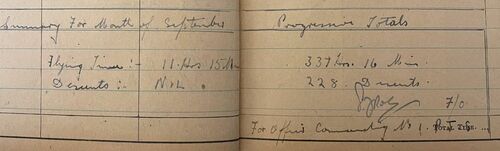 Summary For Month of September
Flying Time :- 11 Hrs 15 Min
Descents :- NIL.
Progressive Totals
337 Hrs. 16 Min.
228. Descents.
F/O
For Officer Commanding No 1.